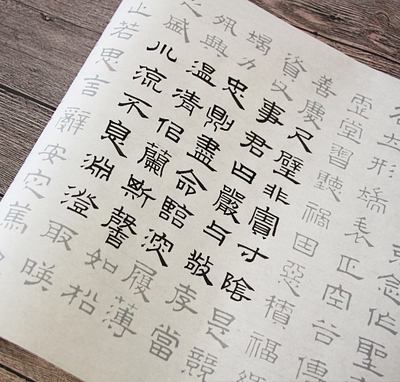 念作聖
形端表正空谷傳
虛堂習聽禍因惡積福
善慶尺璧非寶寸陰是競
資父事君曰嚴与敬孝當
竭力忠則盡命臨深履薄
夙興溫清佀蘭斯馨如松
之盛川流不息淵澄取映
止若思言辭安定篤